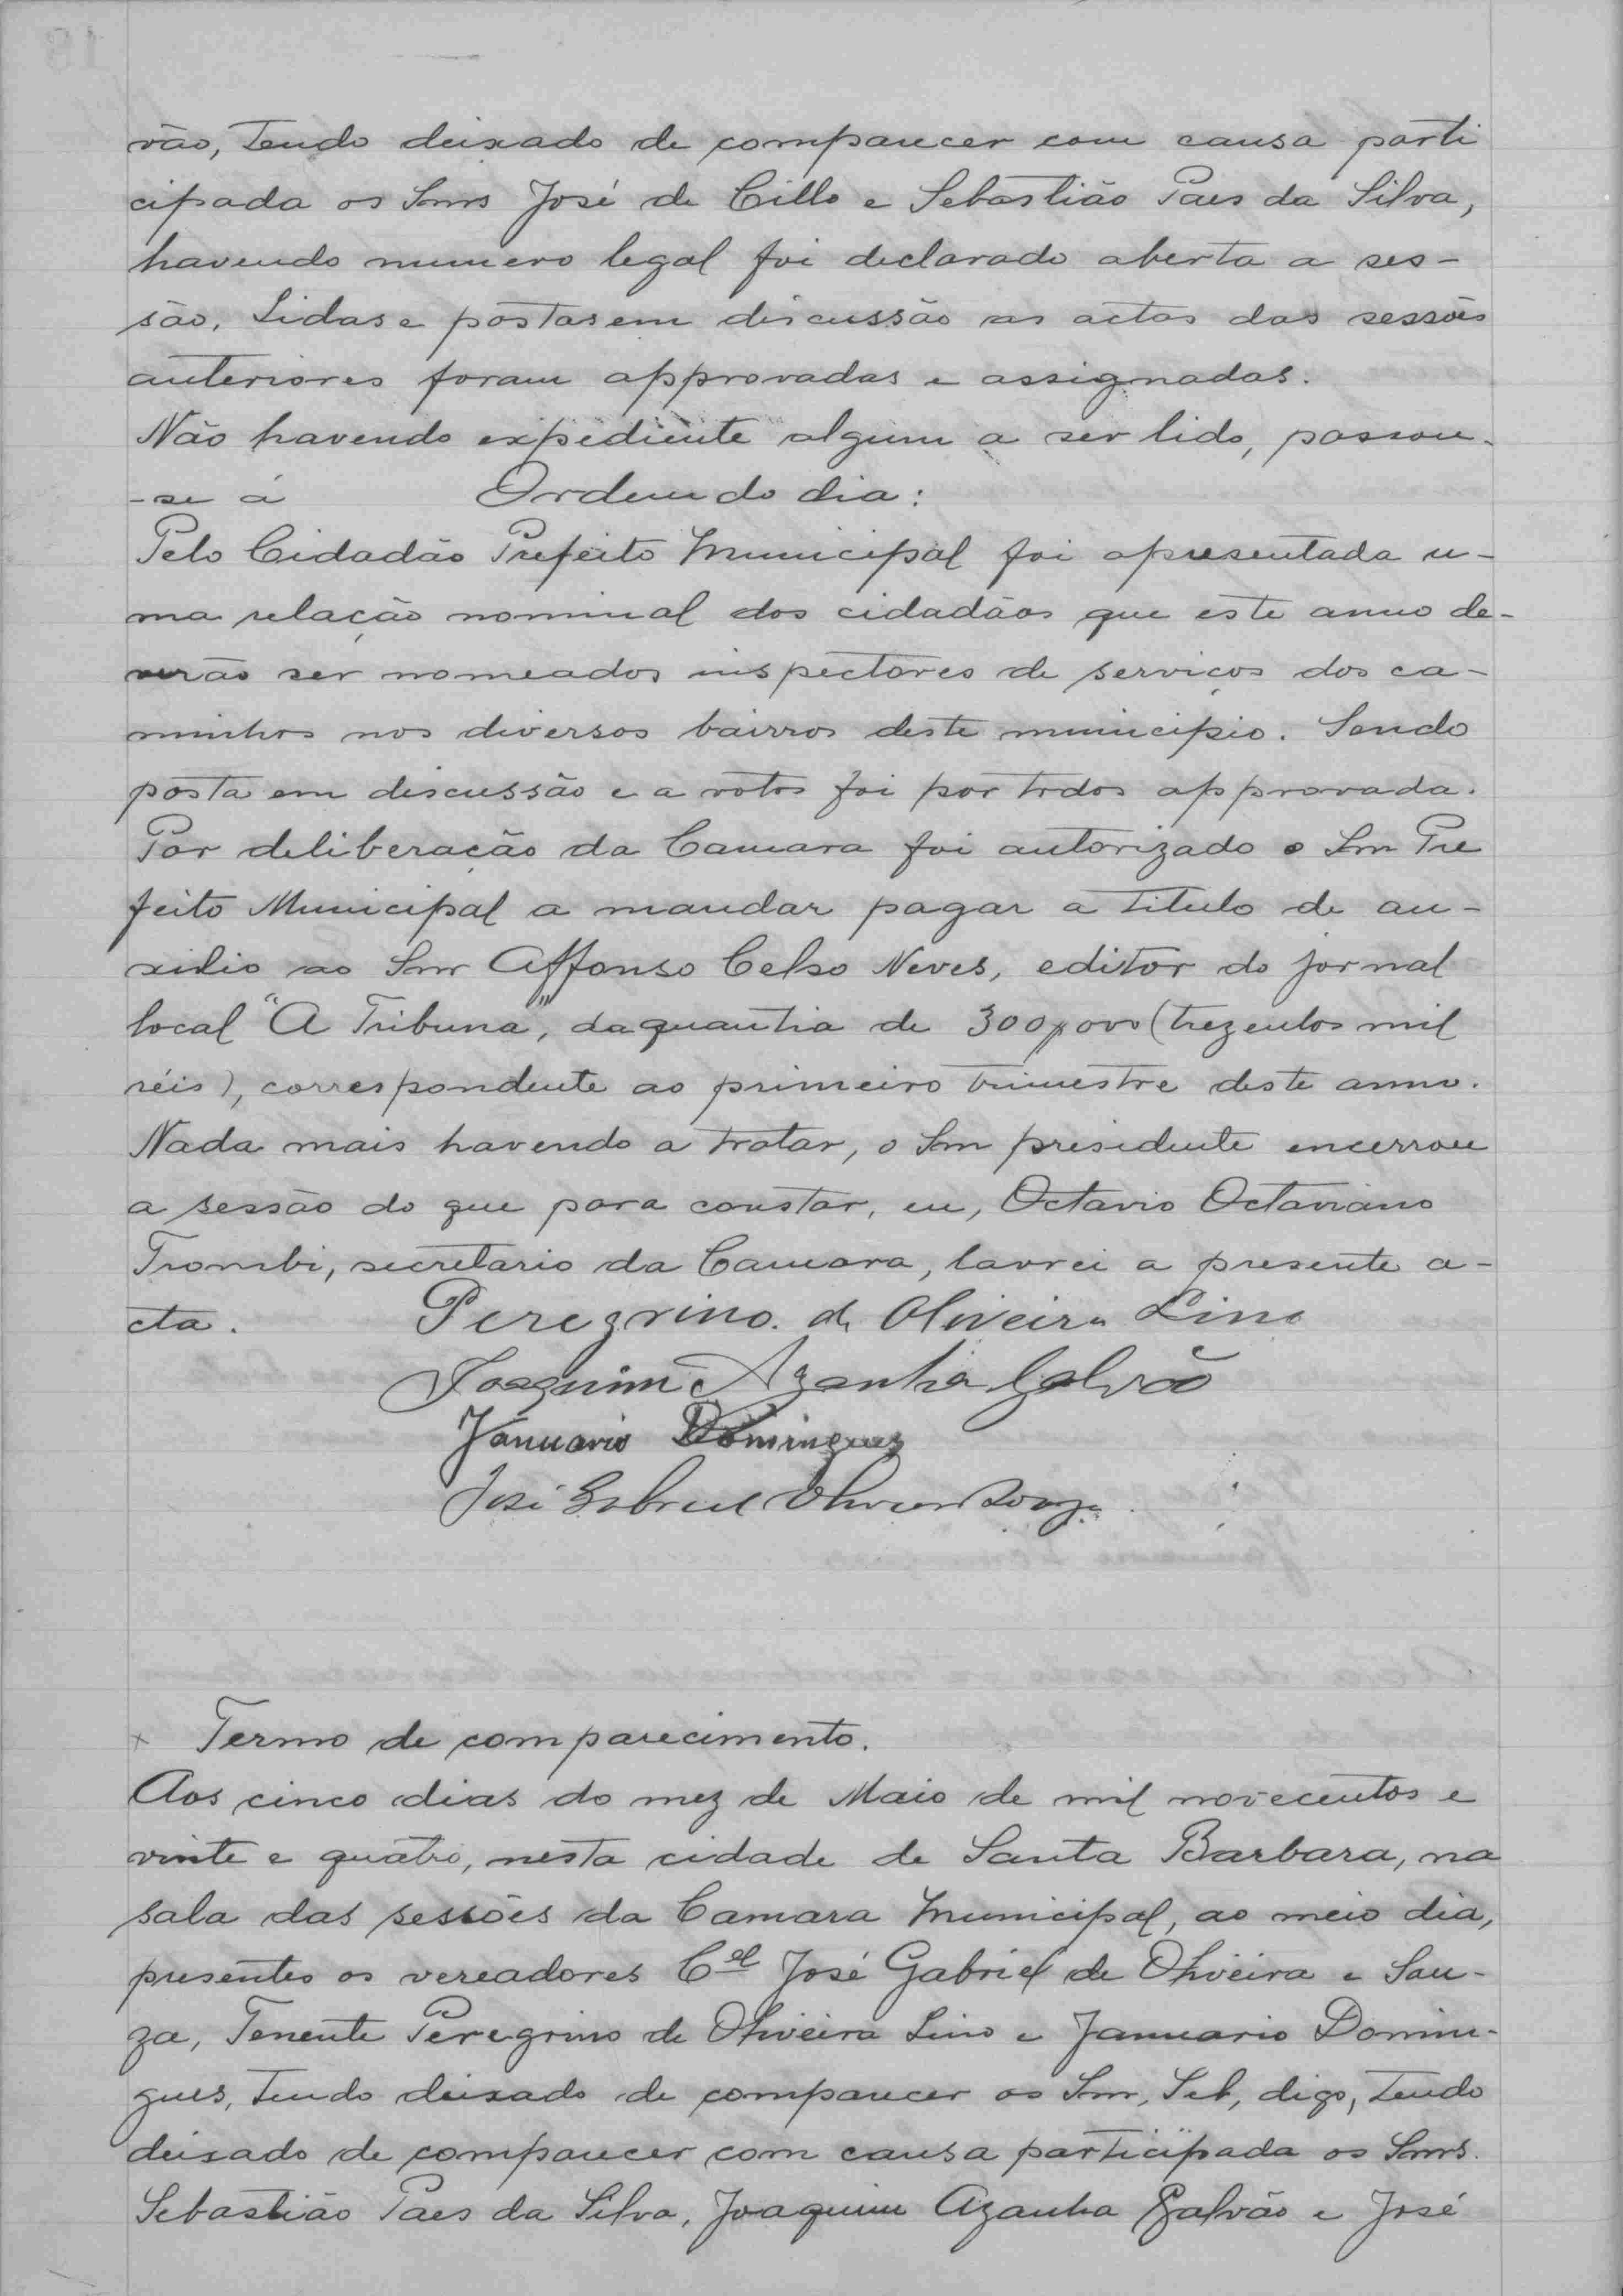 vão, tendo deixado de comparecer com causa parti
cipada os Snrs José de Cillo e Sebastião Paes da Silva,
havendo numero legal foi declarado aberta a ses-
são. Lidas e postas em discussão as actas das sessões
anteriores foram approvadas e assignadas.
Não havendo expediente algum a ser lido, passou-
-se á Ordem do dia:
Pelo Cidadão Prefeito Municipal foi apresentada u-
ma relação nominal dos cidadãos que este anno de-
verão ser nomeados inspectores de serviços dos ca-
minhos nos diversos bairros deste municipio. Sendo
posta em discussão e a votos foi por todos approvada.
Por deliberação da Camara foi autorizado o Snr Pre
feito Municipal a mandar pagar a titulo de au-
xilio ao Snr Affonso Celso Neves, editor do jornal
local "A Tribuna", da quantia de 300$000 (trezentos mil
réis), correspondente ao primeiro trimestre deste anno.
Nada mais havendo a tratar, o Snr presidente encerrou
a sessão do que para constar, eu, Octavio Octaviano
Trombi, secretario da Camara, lavrei a presente a-
cta. Peregrino de Oliveira Lino
Joaquim Azanha Galvão
Januario Domingues
José Gabriel Oliveira Souza
Termo de comparecimento.
Aos cinco dias do mez de Maio de mil novecentos e
vinte e quatro, nesta cidade de Santa Barbara, na
sala das sessões da Camara Municipal, ao meio dia,
presentes os vereadores Cel José Gabriel de Oliveira e Sou-
za, Tenente Peregrino de Oliveira Lino e Januario Domin-
gues, tendo deixado de comparecer os Snr, Seb, digo, tendo
deixado de comparecer com causa participada os Snrs.
Sebastião Paes da Silva, Joaquim Azanha Galvão e José